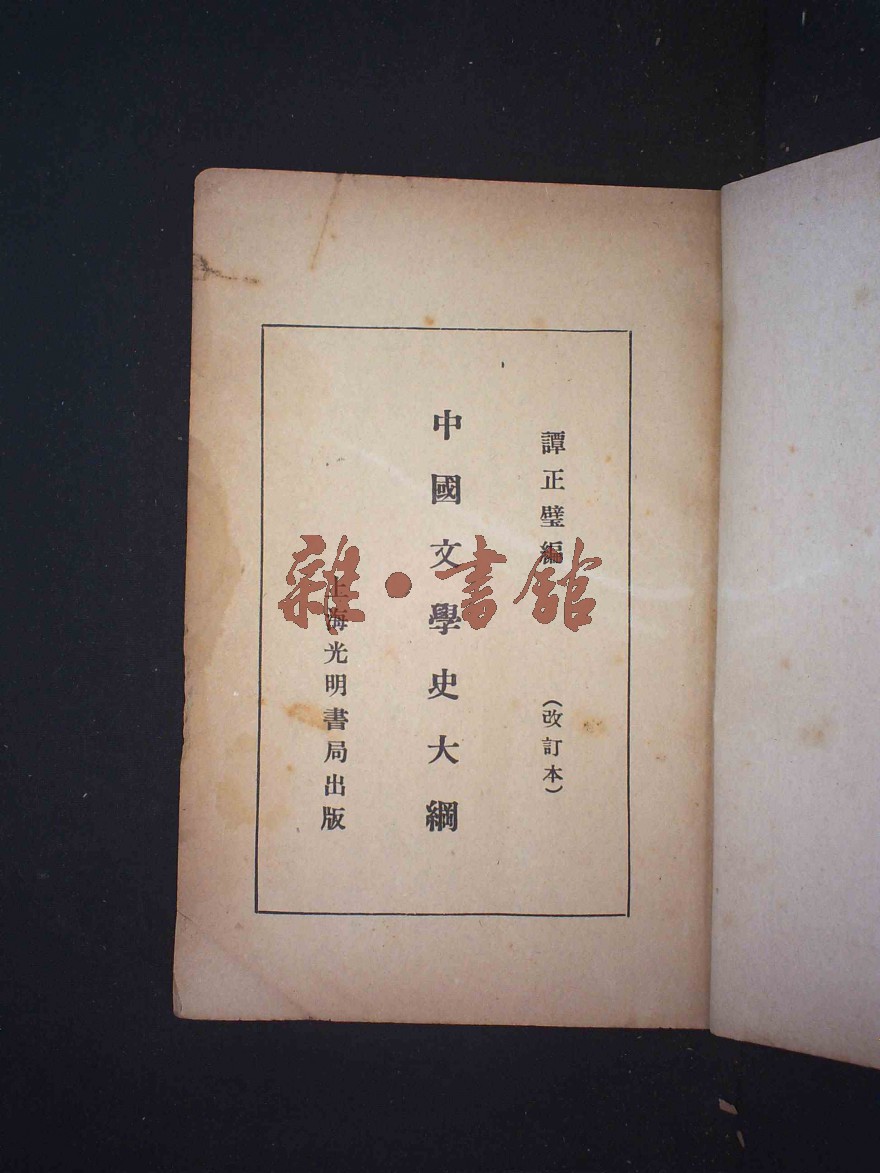 譚正璧編
（改訂本）
中國文學史大綱
上海光明書局出版
雜·書館